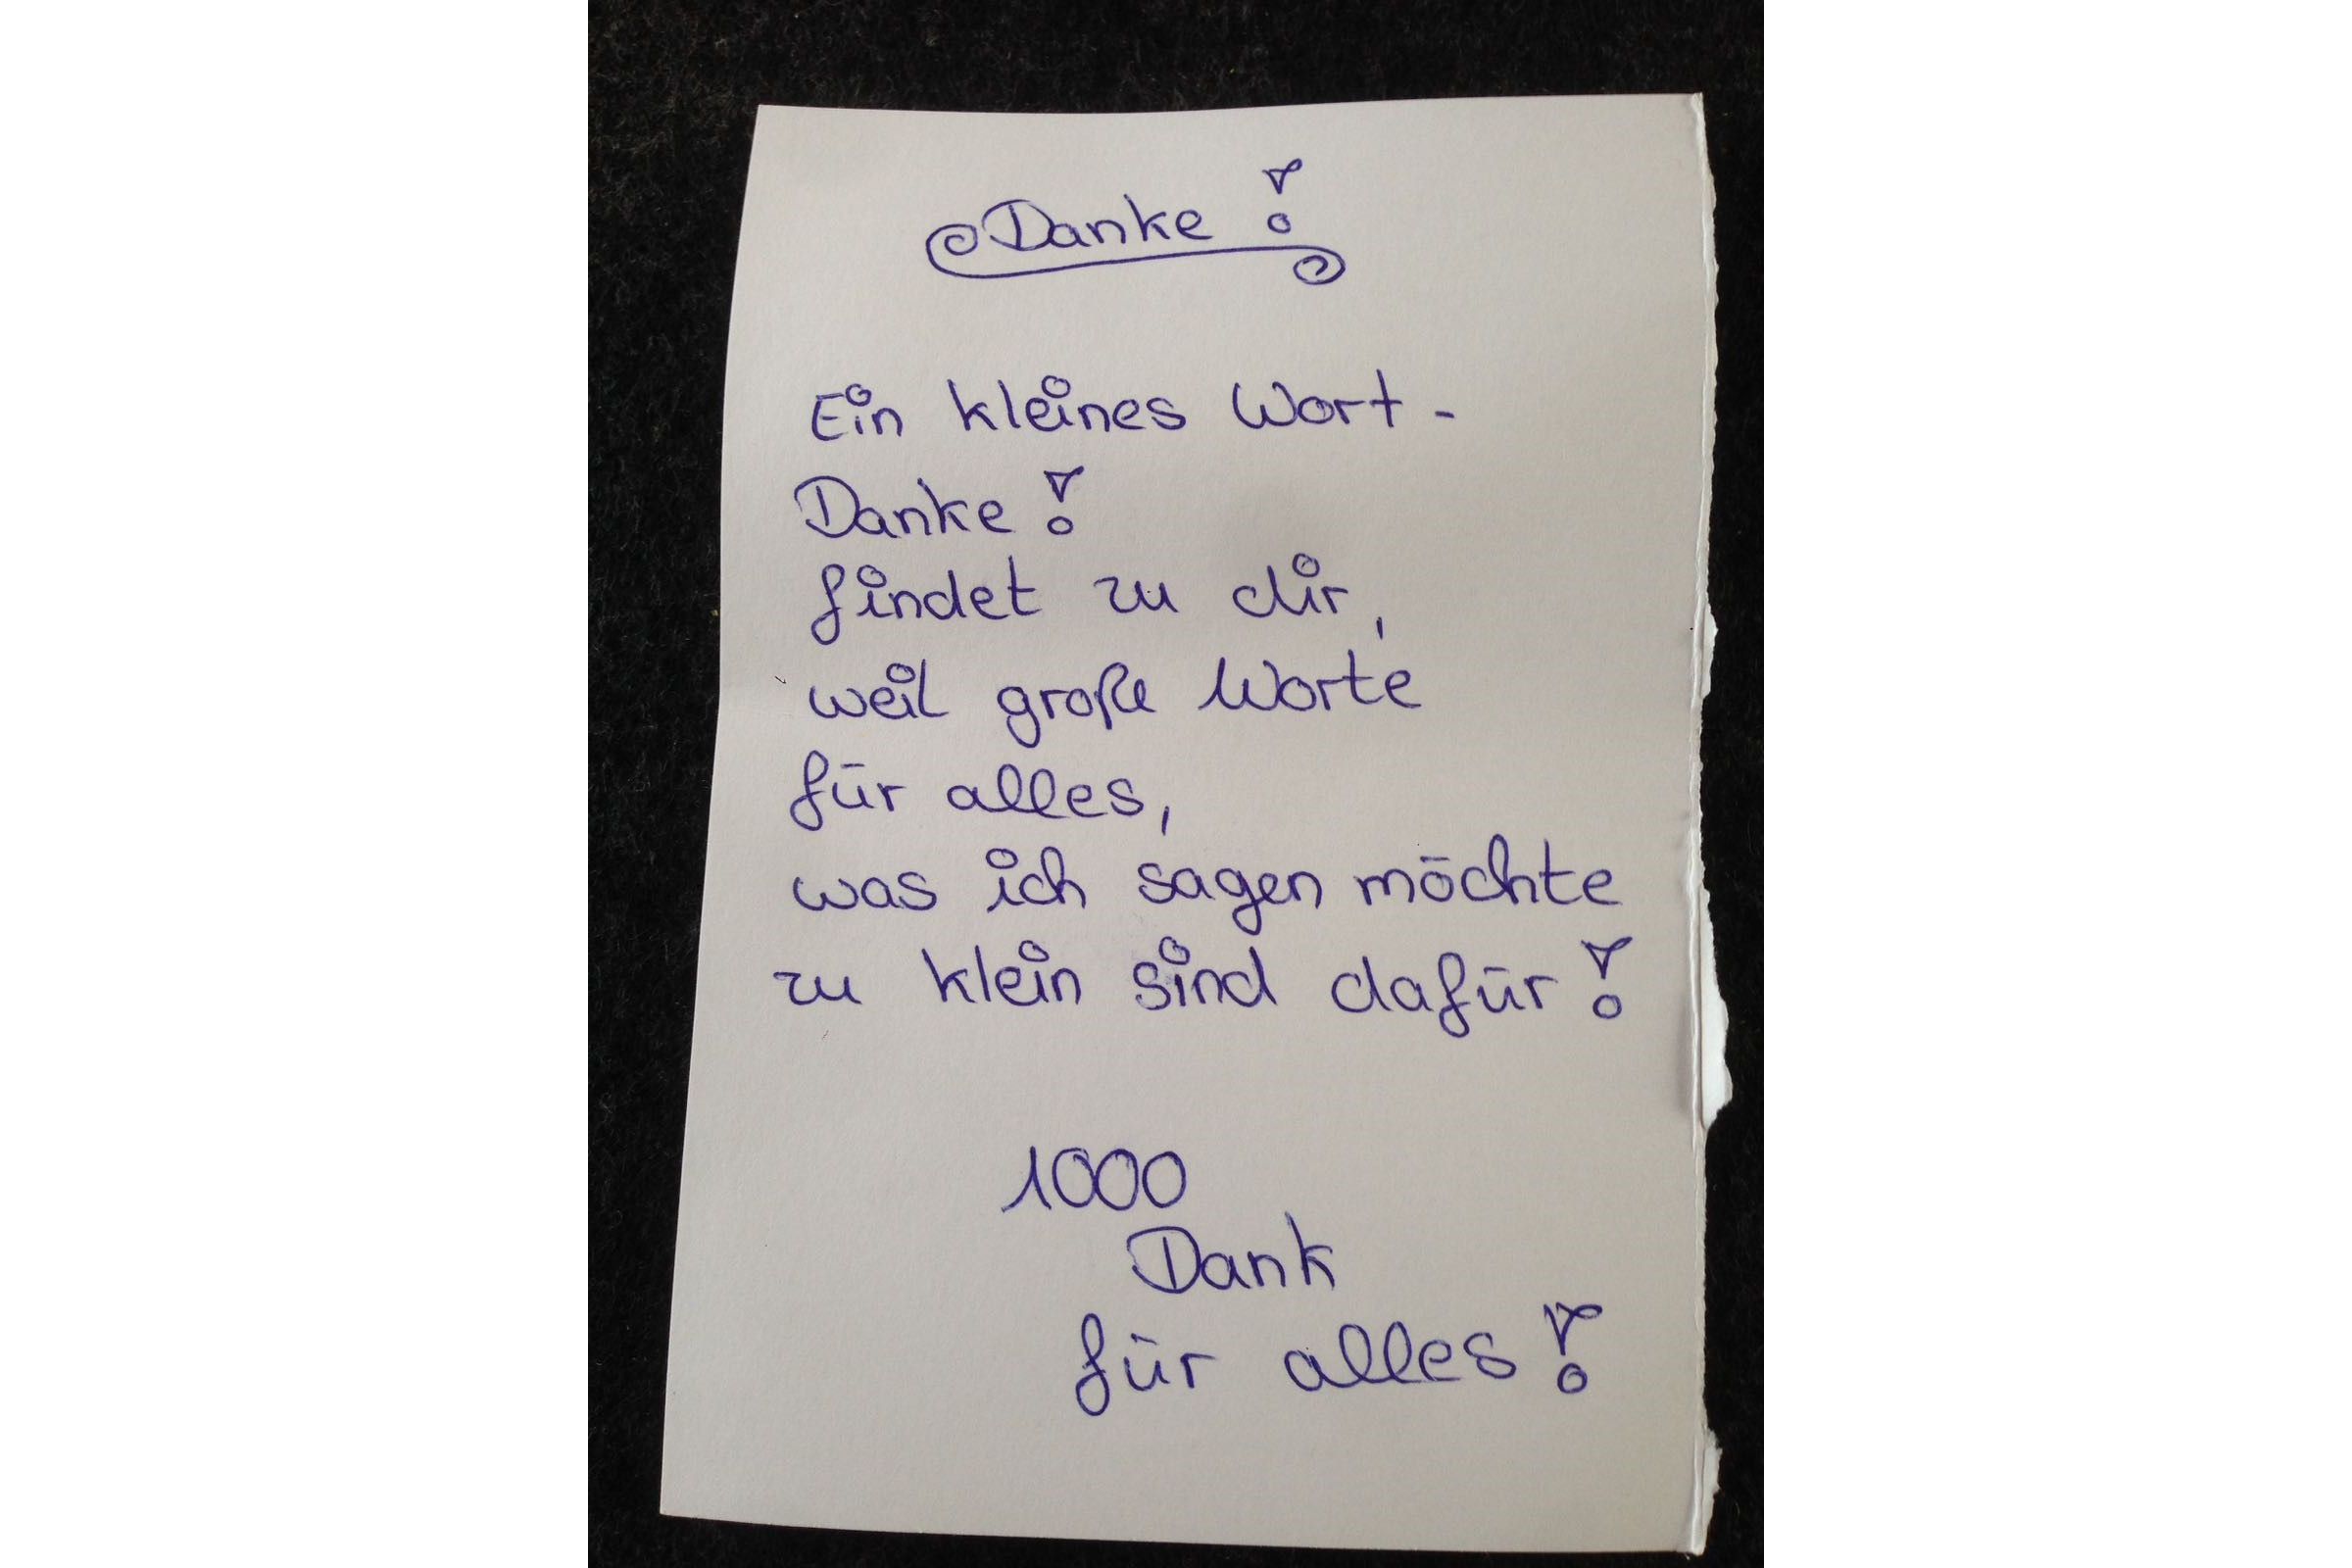 Danke!
Ein kleines Wort -
Danke!
findet zu dir,
weil große Worte
für alles,
was ich sagen möchte
zu klein sind dafür!
1000
Dank
für alles!